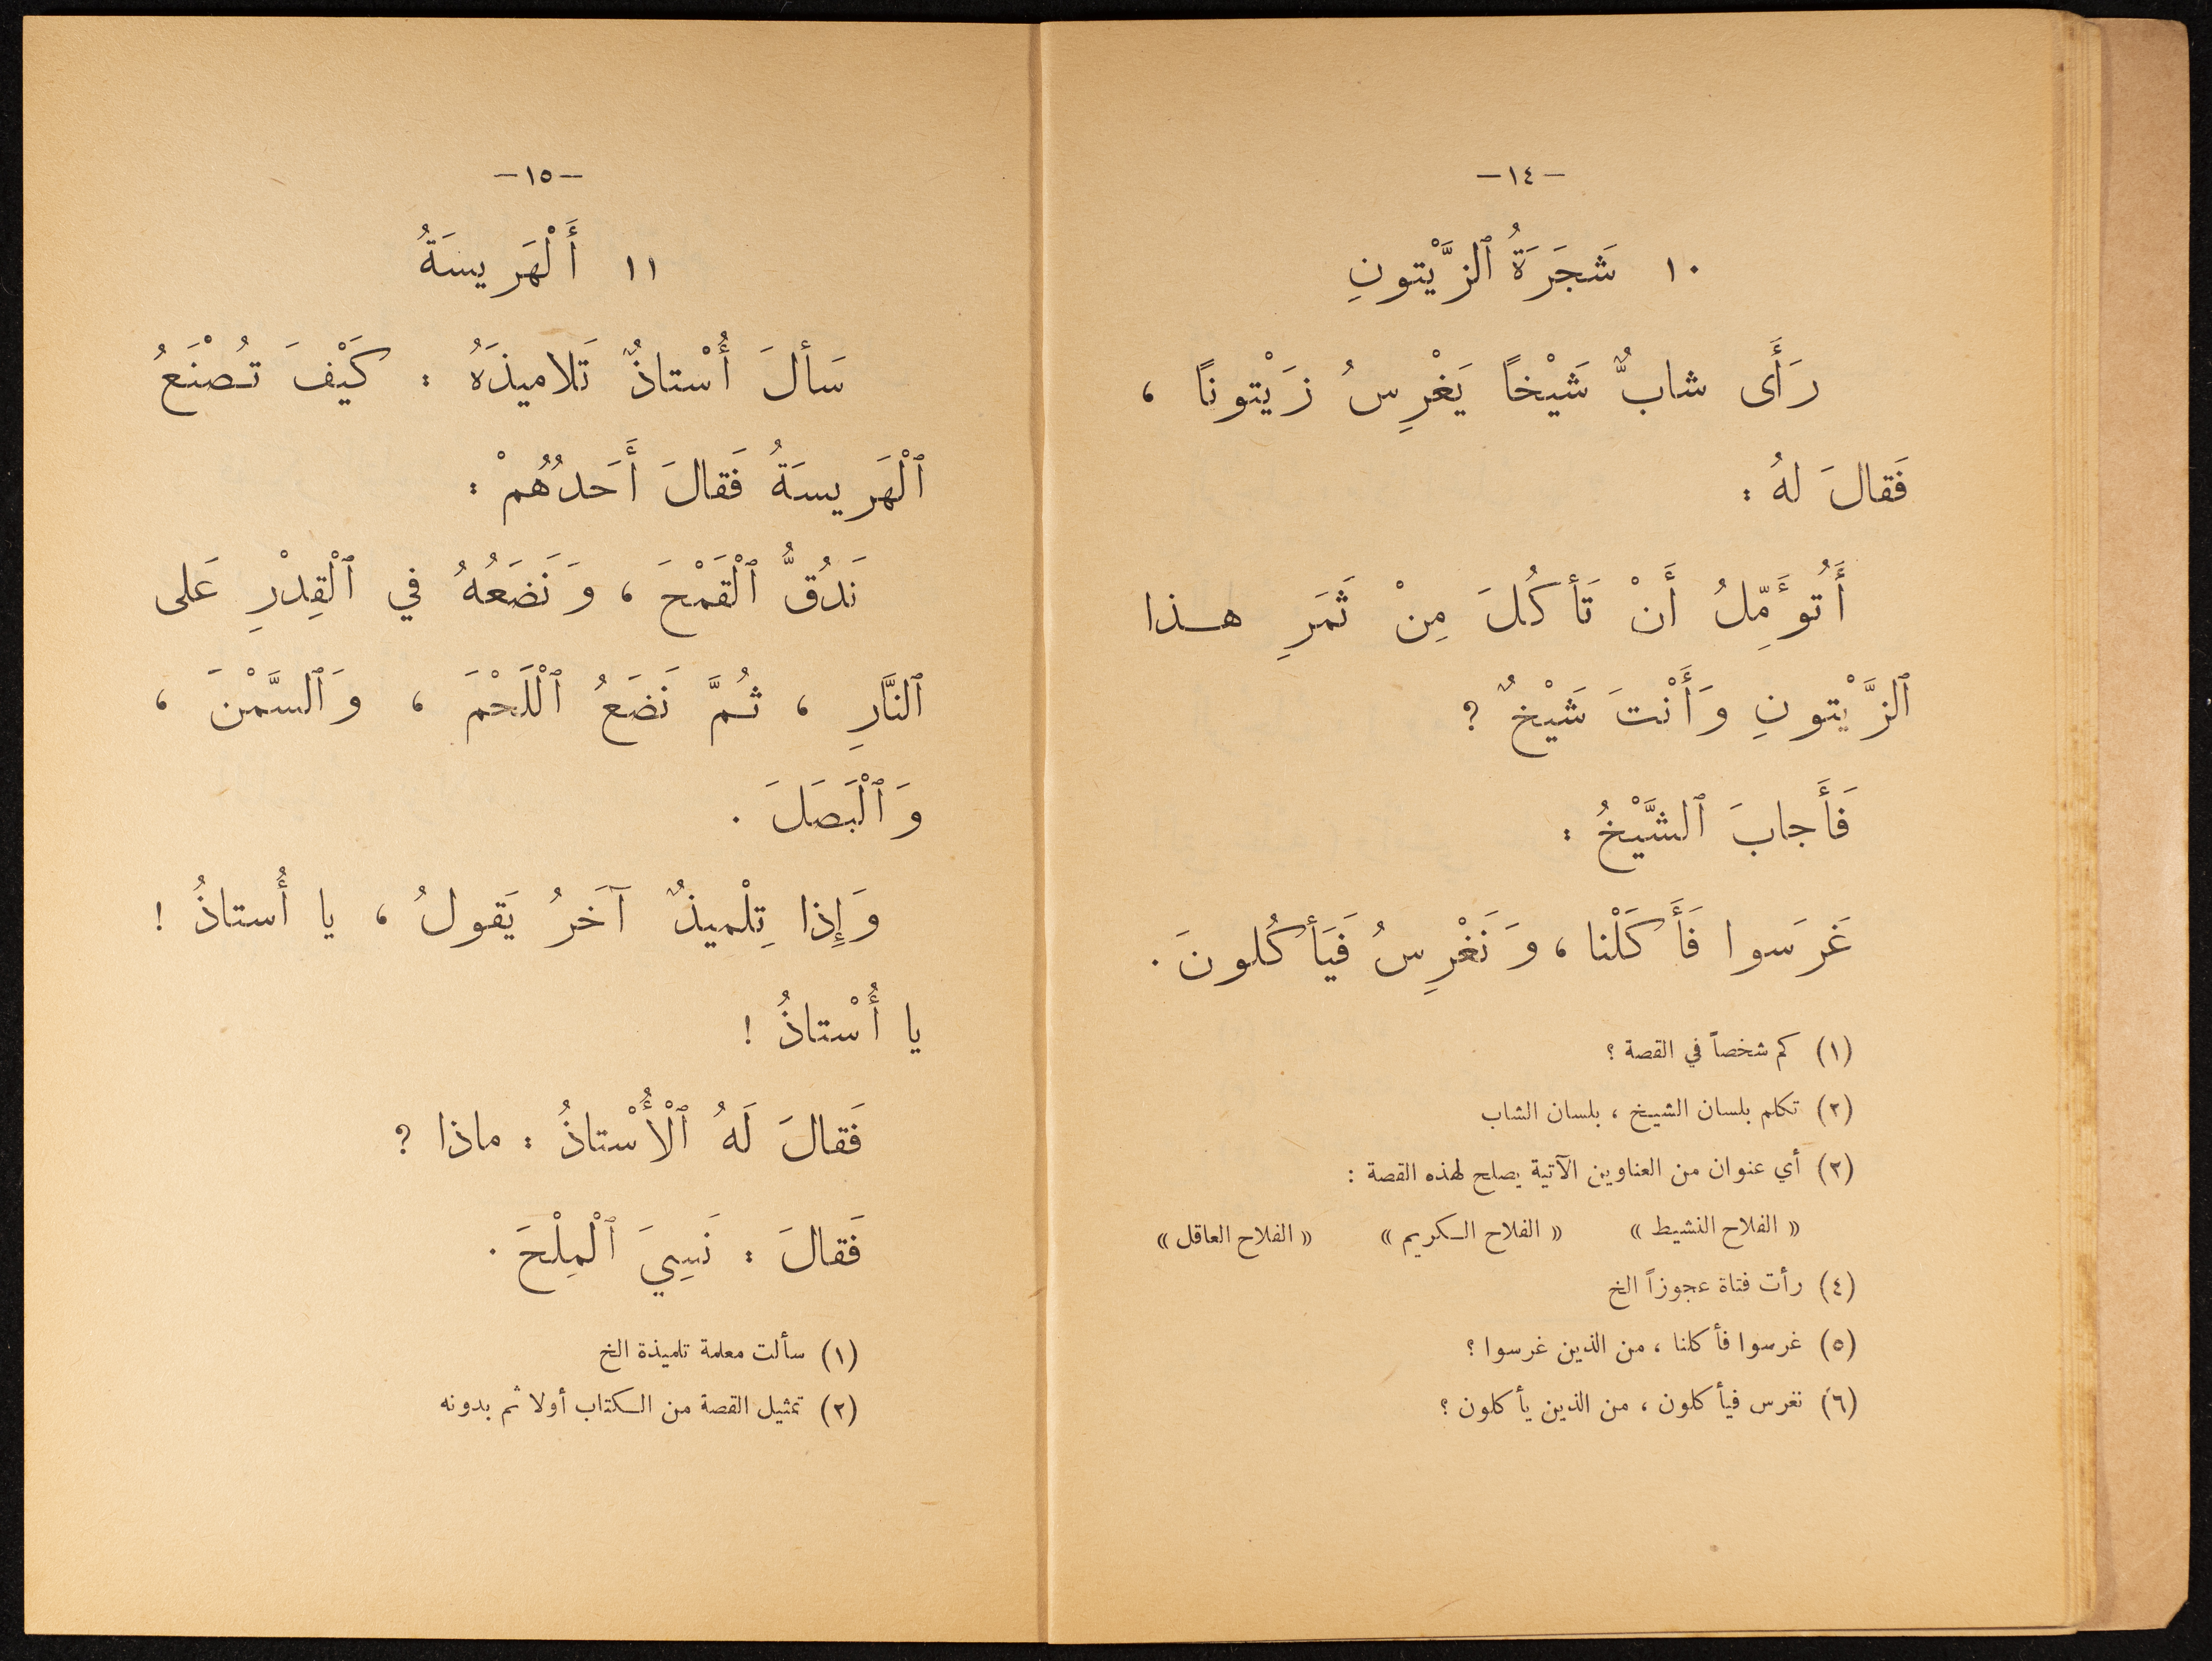 –١٤–
١٠ شَجَرَةُ ٱلزَّيْتونِ
رَأَى شابٌّ شَيْخاً يَغْرِسُ زَيْتوناً ،
فَقالَ لهُ :
أَتُوَّمِّلُ أَنْ تَأكُلَ مِنْ ثَمَرِ هـذا
ٱلزَّيْتونِ وَأَنْتَ شَيْخٌ ?
فَأَجابَ ٱلشَّيْخُ :
غَرَسوا فَأَكَلْنا ، وَنَغْرِسُ فَيَأكُلونَ .
(١) كم شخصاً في القصة ؟
(٢) تكلم بلسان الشيخ ، بلسان الشاب
(٣) أي عنوان من العناوين الآتية يصلح لهذه القصة :
« الفلاح النشيط » « الفلاح الكريم » « الفلاح العاقل »
(٤) رأت فتاة عجوزاً الخ
(٥) غرسوا فأكلنا ، من الذين غرسوا ؟
(٦) نغرس فيأكلون ، من الذين يأكلون ؟
–١٥–
١١ أَلْهَريسَةُ
سَألَ أُسْتاذٌ تَلاميذَهُ : كَيْفَ تُصْنَعُ
ٱلْهَريسَةُ فَقالَ أَحَدُهُمْ :
نَدُقُّ ٱلْقَمْحَ ، وَنَضَعُهُ في ٱلْقِدْرِ عَلى
ٱلنَّارِ ، ثُمَّ نَضَعُ ٱلْلَحْمَ ، وَٱلسَّمْنَ ،
وَٱلْبَصَلَ .
وَإِذا تِلْميذٌ آخَرُ يَقولُ ، يا أُستاذُ !
يا أُسْتاذُ !
فَقالَ لَهُ ٱلْأُسْتاذُ : ماذا ?
فَقالَ : نَسِيَ ٱلْمِلْحَ .
(١) سألت معلمة تلميذة الخ
(٢) تمثيل القصة من الكتاب أولا ثم بدونه